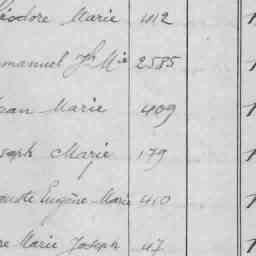 éodore Marie 412
manuel Jh Mie 2585
ean Marie 409
seph Marie 179
uste Eugène Marie 410
re Marie Joseph 47